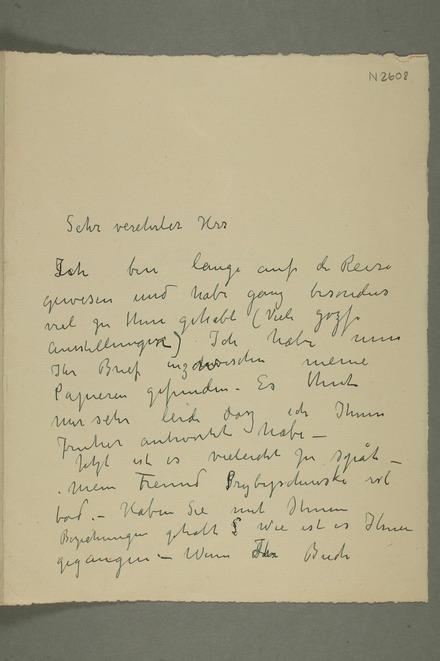 N2608
Sehr verehrter Herr
Ich bin lange auf de Reise
gewesen und habe ganz besonders
viel zu thun gehabt (Viele grosse
Ausstellungen) Ich habe nun
Ihr Brief inzwischen meine
Papieren gefunden – Es thut
mir sehr leid daß ich Ihnen
früher antwortet habe –
Jetzt ist es vieleicht zu spät –
mein Freund Przybyschewski ist
tod. – Haben Sie mit Ihnen
Beziehungen gehabt Wie ist es Ihnen
gegangen – Wenn Ihr Buch